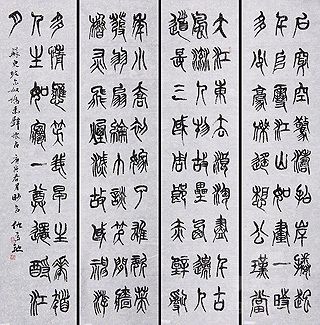 大江東去浪淘盡千古
風流人物故壘西邊人
道是三國周郎赤壁亂
石穿空驚濤拍岸捲起
千堆雪江山如畫一時
多少豪傑遙想公瑾當
年小喬初嫁了雄姿英
發羽扇綸巾談笑間檣
櫓灰飛煙滅故國神游
多情應笑我早生華髮
人生如夢一尊還酹江
月
蘇東坡念奴嬌赤壁懷古